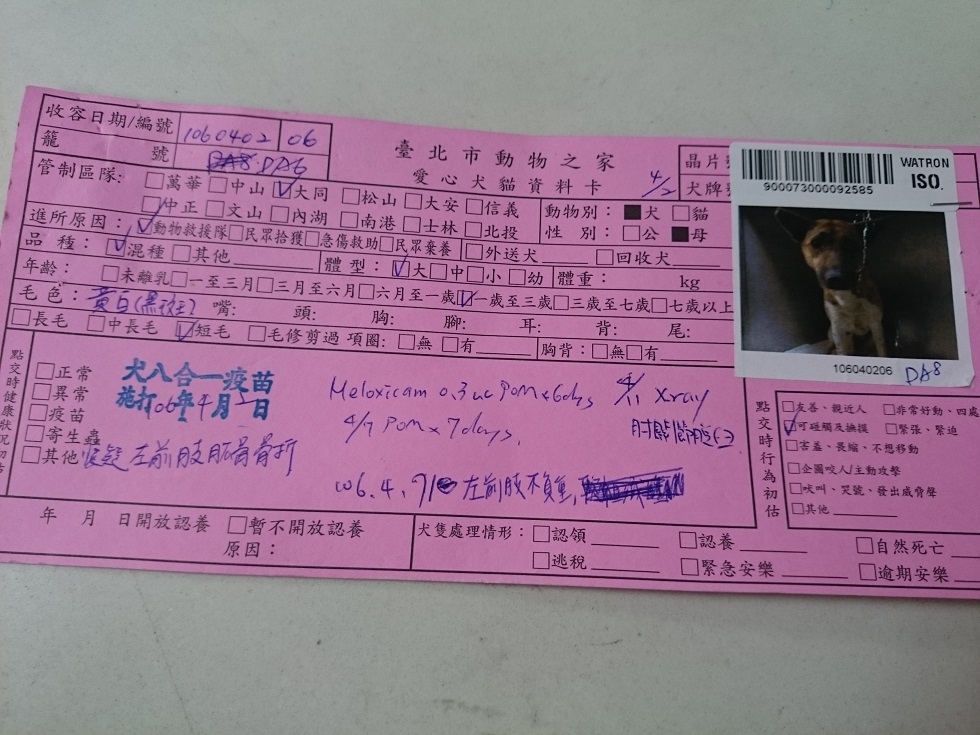 收容日期/編號 1060402 06
籠 號 DA6
臺北市動物之家
愛心犬貓資料卡
4/2
晶片
犬牌
WATRON
ISO.
900073000092585
106040206 DA8
管制區隊: □萬華□中山☑大同 □松山□大安□信義
☑中正□文山□內湖 □南港□士林□北投
動物別：■犬 □貓
性 別：□公 ■母
進所原因：☑動物救援隊□民眾拾獲□急傷救助□民眾棄養
□外送犬 □回收犬
品 種：☑混種□其他
體 型：☑大□中□小□幼 體重： kg
年齡：□未離乳□一至三月□三月至六月□六月至一歲☑一歲至三歲□三歲至七歲□七歲以上
毛色：黃白(黑斑) 嘴: 頭: 胸: 腳: 耳: 背: 尾:
□長毛 □中長毛 ☑短毛 □毛修剪過 項圈：□無 □有 胸背：□無□有
點交時健康狀況初估
□正常
□異常
□疫苗
□寄生蟲
□其他 懷疑左前肢肱骨骨折
犬八合一疫苗
施打106年4月2日
Meloxicam 0.3cc POM x 6days
4/7 POM x 7days,
4/11 Xray
肘關節脫臼
106.4.7 左前肢不負重,
點交時行為初估
□友善、親近人 □非常好動、四處
☑可碰觸及撫摸 □緊張、緊迫
□害羞、畏縮、不想移動
□企圖咬人/主動攻擊
□吠叫、哭號、發出威脅聲
□其他
年 月 日開放認養 □暫不開放認養
原因：
犬隻處理情形：□認領 □認養 □自然死亡
□逃稅 □緊急安樂 □逾期安樂